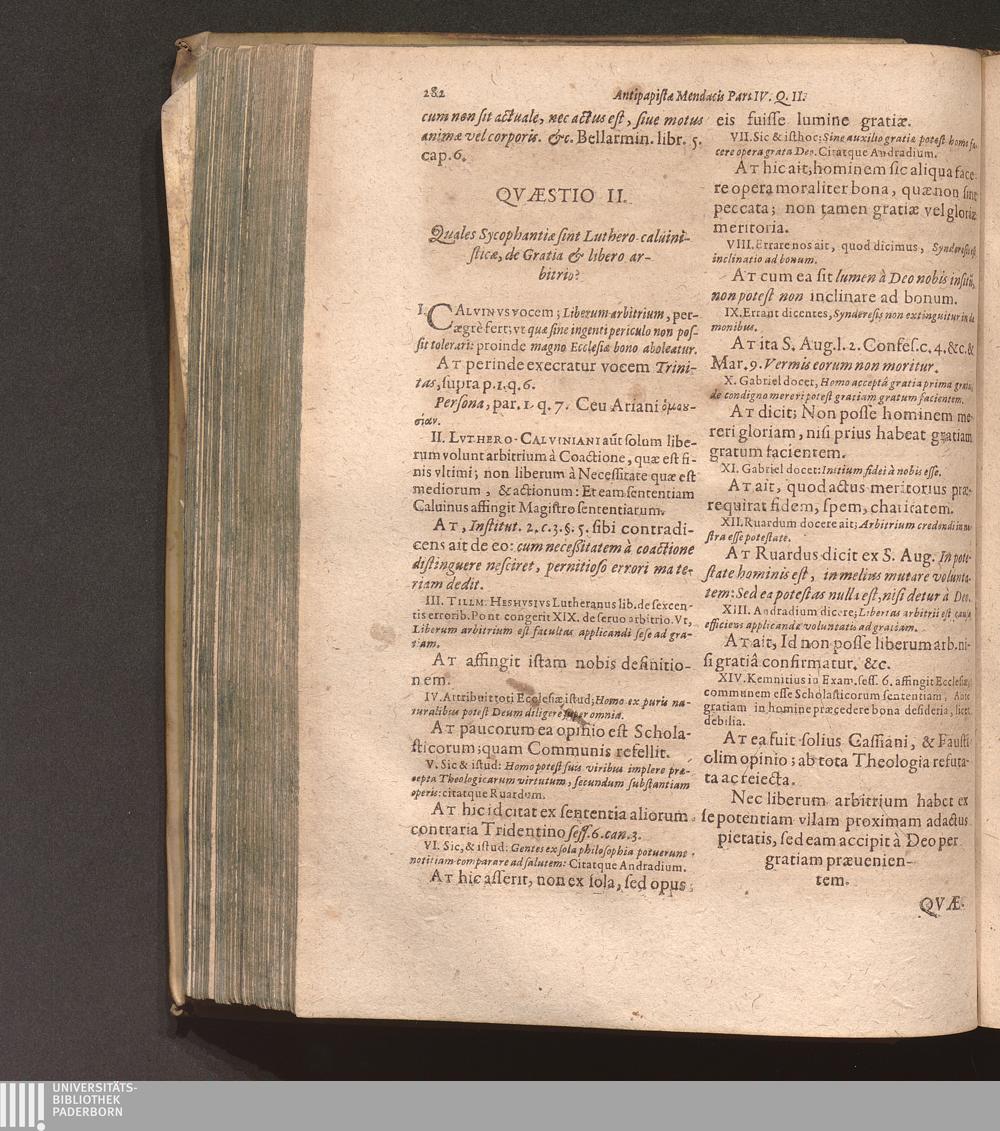 282
Antipapistæ Mendacis Part IV. Q. II.
cum non sit actuale, nec actus est, siue motus
animæ vel corporis. &c. Bellarmin. libr. 5.
cap. 6.
QVÆSTIO II.
Quales Sycophantiæ sint Luthero-caluini-
sticæ, de Gratia & libero ar-
bitrio?
I. CALVINVS vocem; Liberum arbitrium, per-
ægrè fert; vt quæ sine ingenti periculo non pos-
sit tolerari: proinde magno Ecclesiæ bono aboleatur.
AT perinde execratur vocem Trini-
tas, supra p. 1. q. 6.
Persona, par. 1. q. 7. Ceu Ariani ὁμου-
σίαν.
II. LVTHERO-CALVINIANI aūt solum libe-
rum volunt arbitrium à Coactione, quæ est fi-
nis vltimi; non liberum à Necessitate quæ est
mediorum, & actionum: Et eam sententiam
Caluinus affingit Magistro sententiarum.
AT, Institut. 2. c. 3. §. 5. sibi contradi-
cens ait de eo: cum necessitatem à coactione
distinguere nesciret, pernitioso errori mate-
riam dedit.
III. TILLM. HESHVSIVS Lutheranus lib. de sexcen-
tis errorib. Pont. congerit XIX. de seruo arbitrio. Vt,
Liberum arbitrium est facultas applicandi sese ad gra-
tiam.
AT affingit istam nobis definitio-
nem.
IV. Attribuit toti Ecclesiæ istud; Homo ex puris na-
turalibus potest Deum diligere super omnia.
AT paucorum ea opinio est Schola-
sticorum; quam Communis refellit.
V. Sic & istud: Homo potest suis viribus implere præ-
cepta Theologicarum virtutum, secundum substantiam
operis: citatque Ruardum.
AT hic id citat ex sententia aliorum
contraria Tridentino sess. 6. can. 3.
VI. Sic, & istud: Gentes ex sola philosophia potuerunt
notitiam comparare ad salutem: Citatque Andradium.
AT hic asserit, non ex sola, sed opus
eis fuisse lumine gratiæ.
VII. Sic & isthoc: Sine auxilio gratiæ potest homo fa-
cere opera grata Deo. Citatque Andradium.
AT hic ait, hominem sic aliqua face-
re opera moraliter bona, quæ non sint
peccata; non tamen gratiæ vel gloriæ
meritoria.
VIII. Errare nos ait, quod dicimus, Synderesis est
inclinatio ad bonum.
AT cum ea sit lumen à Deo nobis insitū,
non potest non inclinare ad bonum.
IX. Errant dicentes, Synderesis non extinguitur in dæ
monibus.
AT ita S. Aug. l. 2. Confes. c. 4. &c. &
Mar. 9. Vermis eorum non moritur.
X. Gabriel docet, Homo acceptâ gratia prima gratis,
de condigno mereri potest gratiam gratum facientem.
AT dicit; Non posse hominem me-
reri gloriam, nisi prius habeat gratiam
gratum facientem.
XI. Gabriel docet: Initium fidei à nobis esse.
AT ait, quod actus meritorius præ-
requirat fidem, spem, charitatem.
XII. Ruardum docere ait; Arbitrium credendi in no
stra esse potestate.
AT Ruardus dicit ex S. Aug. In pote-
state hominis est, in melius mutare volunta-
tem: Sed ea potestas nulla est, nisi detur à Deo.
XIII. Andradium dicere; Libertas arbitrii est causa
efficiens applicandæ voluntatis ad gratiam.
AT ait, Id non posse liberum arb. ni-
si gratiâ confirmatur, &c.
XIV. Kemnitius in Exam. sess. 6. affingit Ecclesiæ,
communem esse Scholasticorum sententiam, Ante
gratiam in homine præcedere bona desideria, licet
debilia.
AT ea fuit solius Cassiani, & Fausti
olim opinio; ab tota Theologia refuta-
ta ac reiecta.
Nec liberum arbitrium habet ex
se potentiam vllam proximam ad actus
pietatis, sed eam accipit à Deo per
gratiam præuenien-
tem.
QVÆ-
UNIVERSITÄTS-
BIBLIOTHEK
PADERBORN